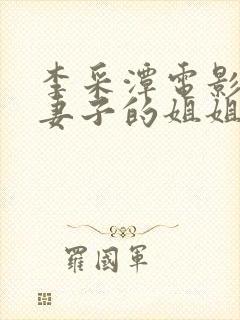 李采潭電影
妻子的姐姐
羅國軍